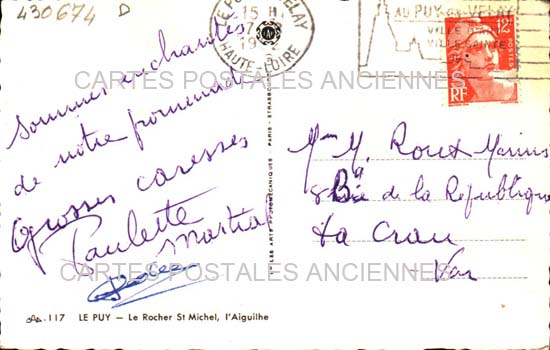 430674 D
LE PUY EN VELAY
15 H
HAUTE-LOIRE
AU PUY EN VELAY
VILLE D'ART
VILLE SAINTE
12F
POSTES
RF
CARTES POSTALES ANCIENNES
Sommes enchantés
de notre promenade
Grosses caresses
Paulette
Martial
Mme M. Roux Marius
8 Bd de la République
La Crau
Var
CARTES POSTALES ANCIENNES
117 LE PUY — Le Rocher St Michel, l'Aiguilhe
LES ARTS PHOTOMÉCANIQUES PARIS - STRASBOURG